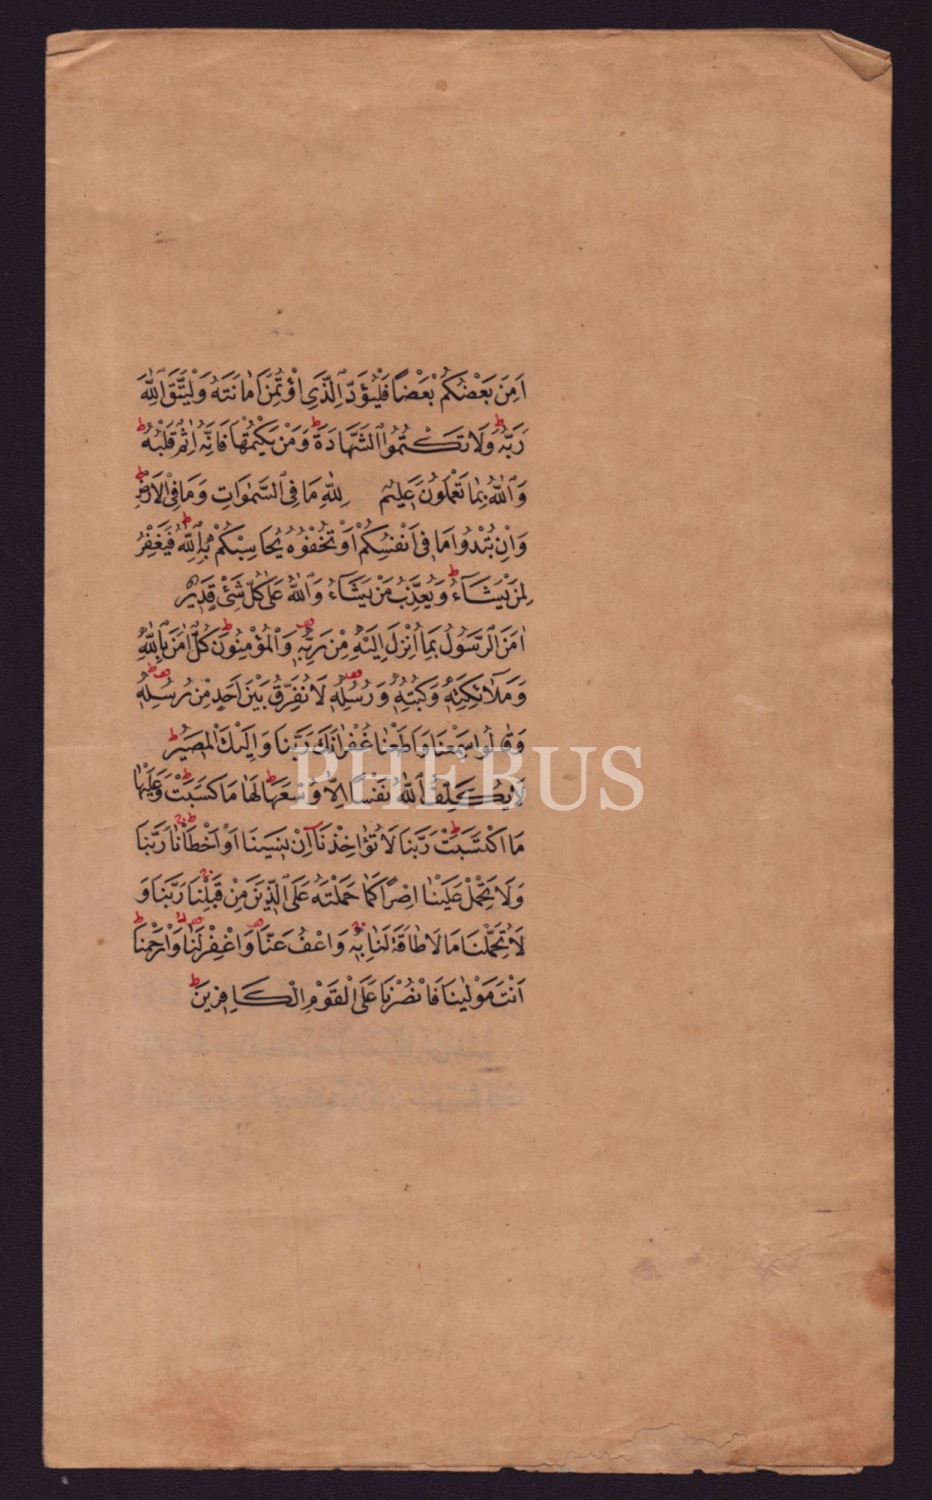 اَمِنَ بَعْضُكُمْ بَعْضًا فَلْيُؤَدِّ الَّذِي اؤْتُمِنَ اَمَانَتَهُ وَلْيَتَّقِ اللّٰهَ
رَبَّهُ وَلَا تَكْتُمُوا الشَّهَادَةَ وَمَنْ يَكْتُمْهَا فَاِنَّهُ اٰثِمٌ قَلْبُهُ
وَاللّٰهُ بِمَا تَعْمَلُونَ عَلِيمٌ لِلّٰهِ مَا فِي السَّمٰوَاتِ وَمَا فِي الْاَرْضِ
وَاِنْ تُبْدُوا مَا فِي اَنْفُسِكُمْ اَوْ تُخْفُوهُ يُحَاسِبْكُمْ بِهِ اللّٰهُ فَيَغْفِرُ
لِمَنْ يَشَاءُ وَيُعَذِّبُ مَنْ يَشَاءُ وَاللّٰهُ عَلٰى كُلِّ شَيْءٍ قَدِيرٌ
اٰمَنَ الرَّسُولُ بِمَا اُنْزِلَ اِلَيْهِ مِنْ رَبِّهِ وَالْمُؤْمِنُونَ كُلٌّ اٰمَنَ بِاللّٰهِ
وَمَلٰئِكَتِهِ وَكُتُبِهِ وَرُسُلِهِ لَا نُفَرِّقُ بَيْنَ اَحَدٍ مِنْ رُسُلِهِ
وَقَالُوا سَمِعْنَا وَاَطَعْنَا غُفْرَانَكَ رَبَّنَا وَاِلَيْكَ الْمَصِيرُ
لَا يُكَلِّفُ اللّٰهُ نَفْسًا اِلَّا وُسْعَهَا لَهَا مَا كَسَبَتْ وَعَلَيْهَا
مَا اكْتَسَبَتْ رَبَّنَا لَا تُؤَاخِذْنَا اِنْ نَسِينَا اَوْ اَخْطَأْنَا رَبَّنَا
وَلَا تَحْمِلْ عَلَيْنَا اِصْرًا كَمَا حَمَلْتَهُ عَلَى الَّذِينَ مِنْ قَبْلِنَا رَبَّنَا وَ
لَا تُحَمِّلْنَا مَا لَا طَاقَةَ لَنَا بِهِ وَاعْفُ عَنَّا وَاغْفِرْ لَنَا وَارْحَمْنَا
اَنْتَ مَوْلٰينَا فَانْصُرْنَا عَلَى الْقَوْمِ الْكَافِرِينَ
PHEBUS